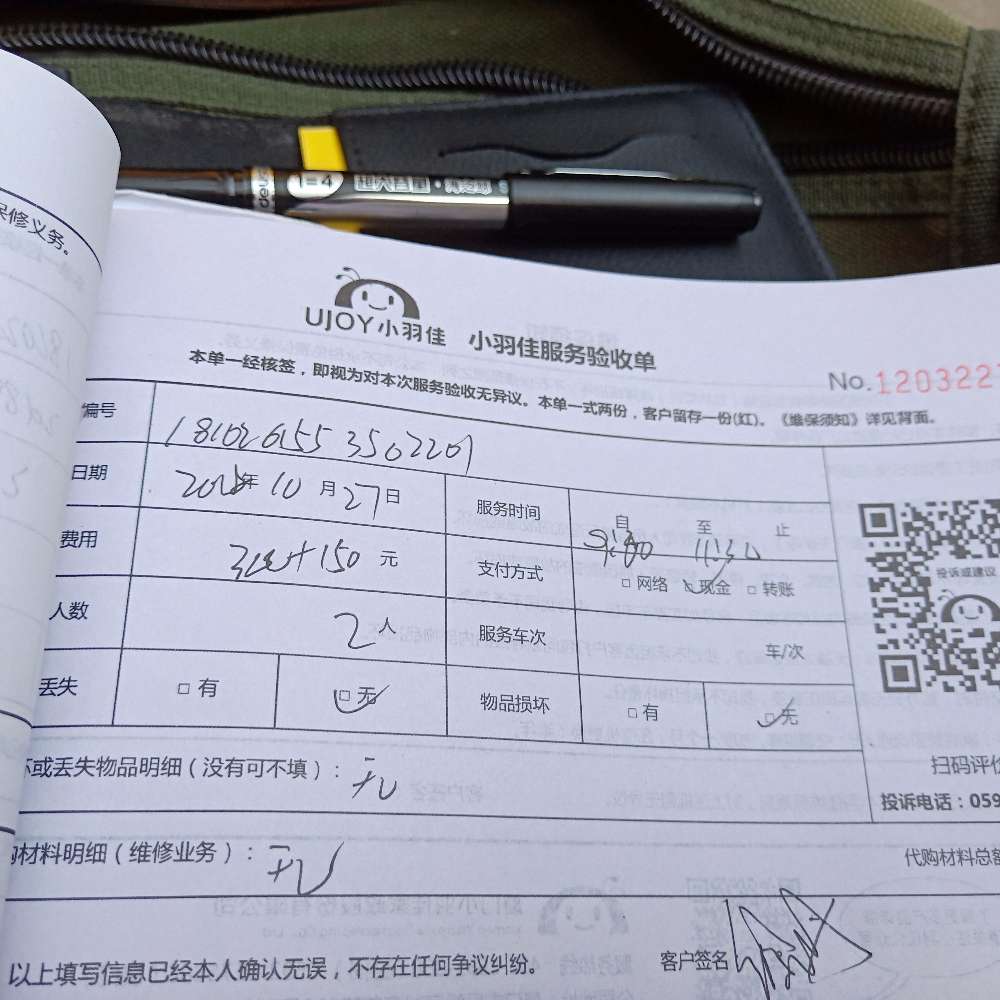 保修义务。
deli 1=4 超大容量·
UJOY小羽佳 小羽佳服务验收单
No.1203227
本单一经核签，即视为对本次服务验收无异议。本单一式两份，客户留存一份(红)。《维保须知》详见背面。
编号 1810261553502201
日期 年10月27日 服务时间 自 至 11:30 止
费用 +150 元 支付方式 □ 网络 □ 现金 □ 转账
投诉或建议
人数 2人 服务车次 车/次
丢失 □ 有 □ 无 物品损坏 □ 有 □ 无
坏或丢失物品明细（没有可不填）：无
扫码评价
投诉电话：059
购材料明细（维修业务）：无
代购材料总额
以上填写信息已经本人确认无误，不存在任何争议纠纷。 客户签名